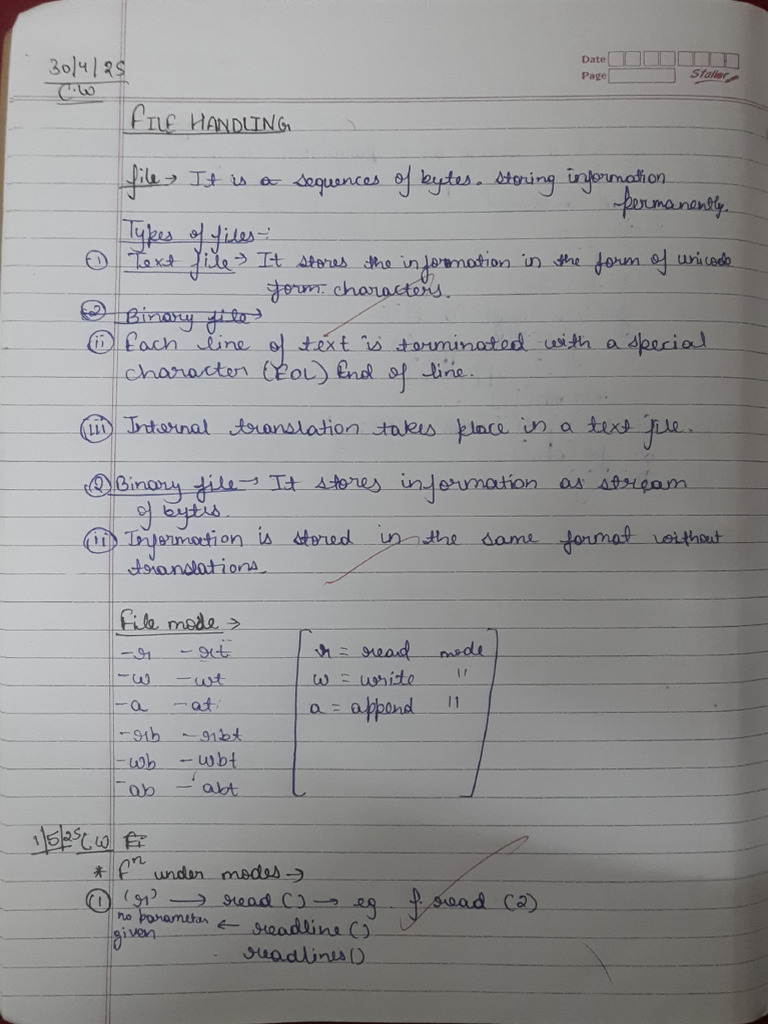 30/4/25
C.W
Date
Page
FILE HANDLING
file → It is a sequences of bytes. storing information
permanently.
Types of files:-
① Text file → It stores the information in the form of unicode
form characters.
② Binary file →
ⅱ Each line of text is terminated with a special
character (EOL) End of line.
ⅲ Internal translation takes place in a text file.
② Binary file → It stores information as stream
of bytes.
ⅱ Information is stored in the same format without
translations.
File mode →
-r -rt r = read mode
-w -wt w = write "
-a -at a = append "
-rb -rbt
-wb -wbt
-ab -abt
1/5/25 CW
* fⁿ under modes →
① 'r' → read () → eg. f. read (2)
no parameter given ← readline ()
readlines()